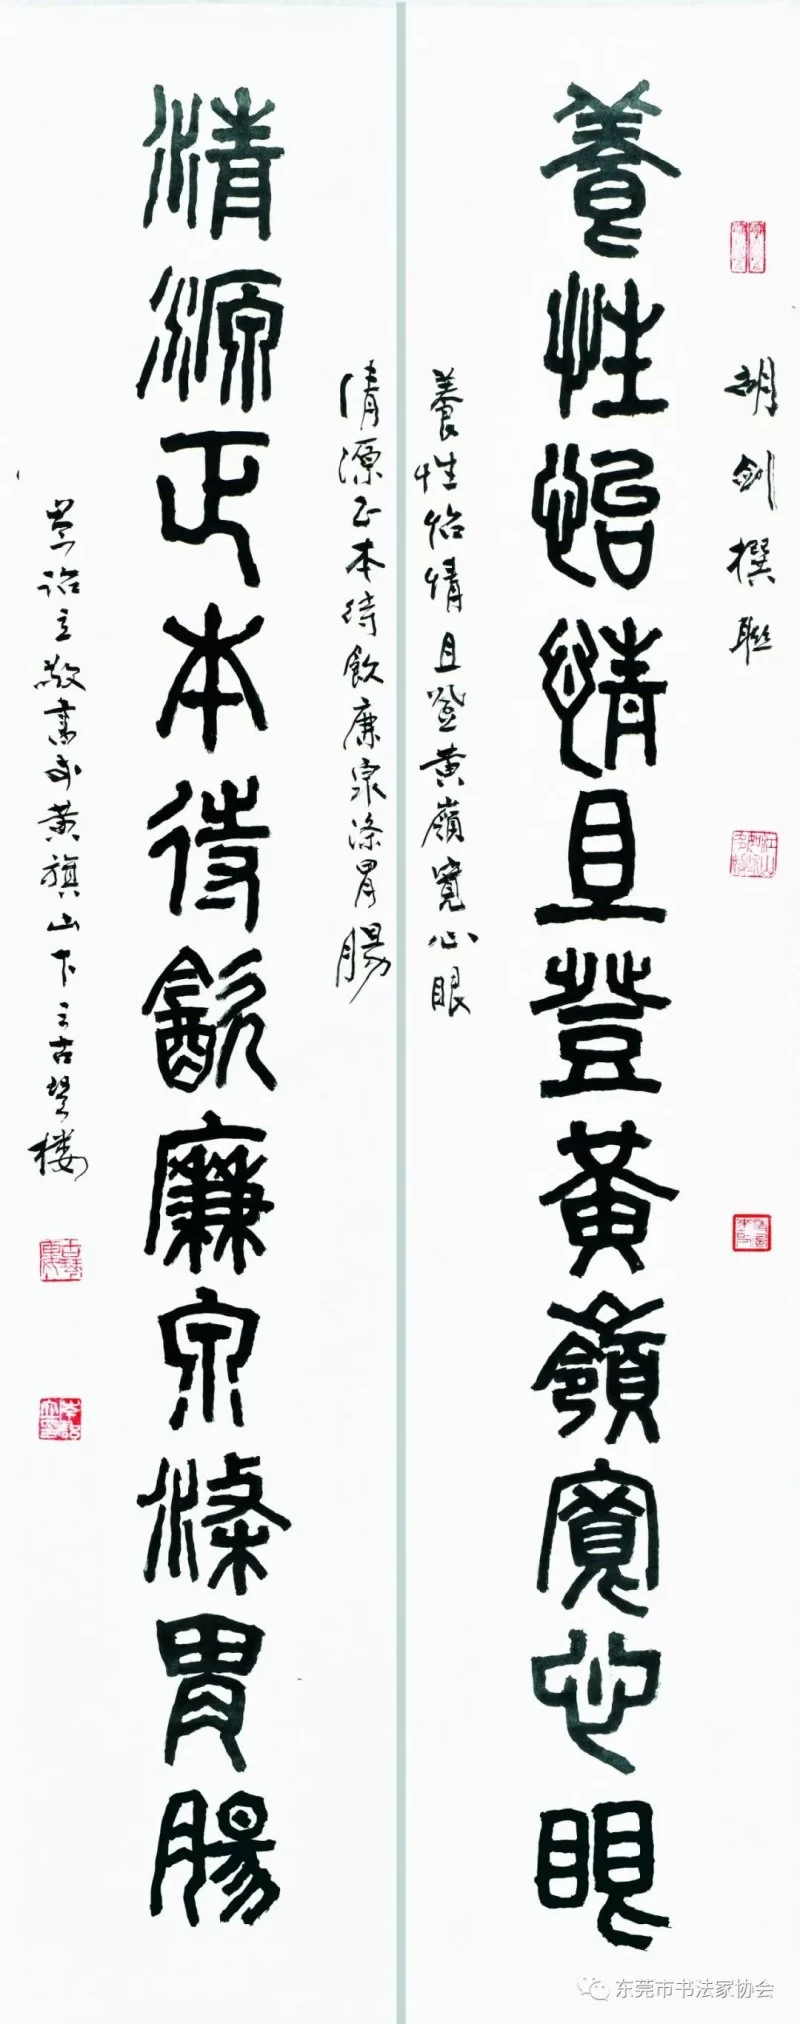 胡剑撰联
養性怡情且登黄嶺寬心眼
養性怡情且登黄嶺寬心眼
清源正本待飲廉泉滌胃腸
清源正本待飲廉泉滌胃腸
詒立敬書於黄旗山下之古琴楼
东莞市书法家协会